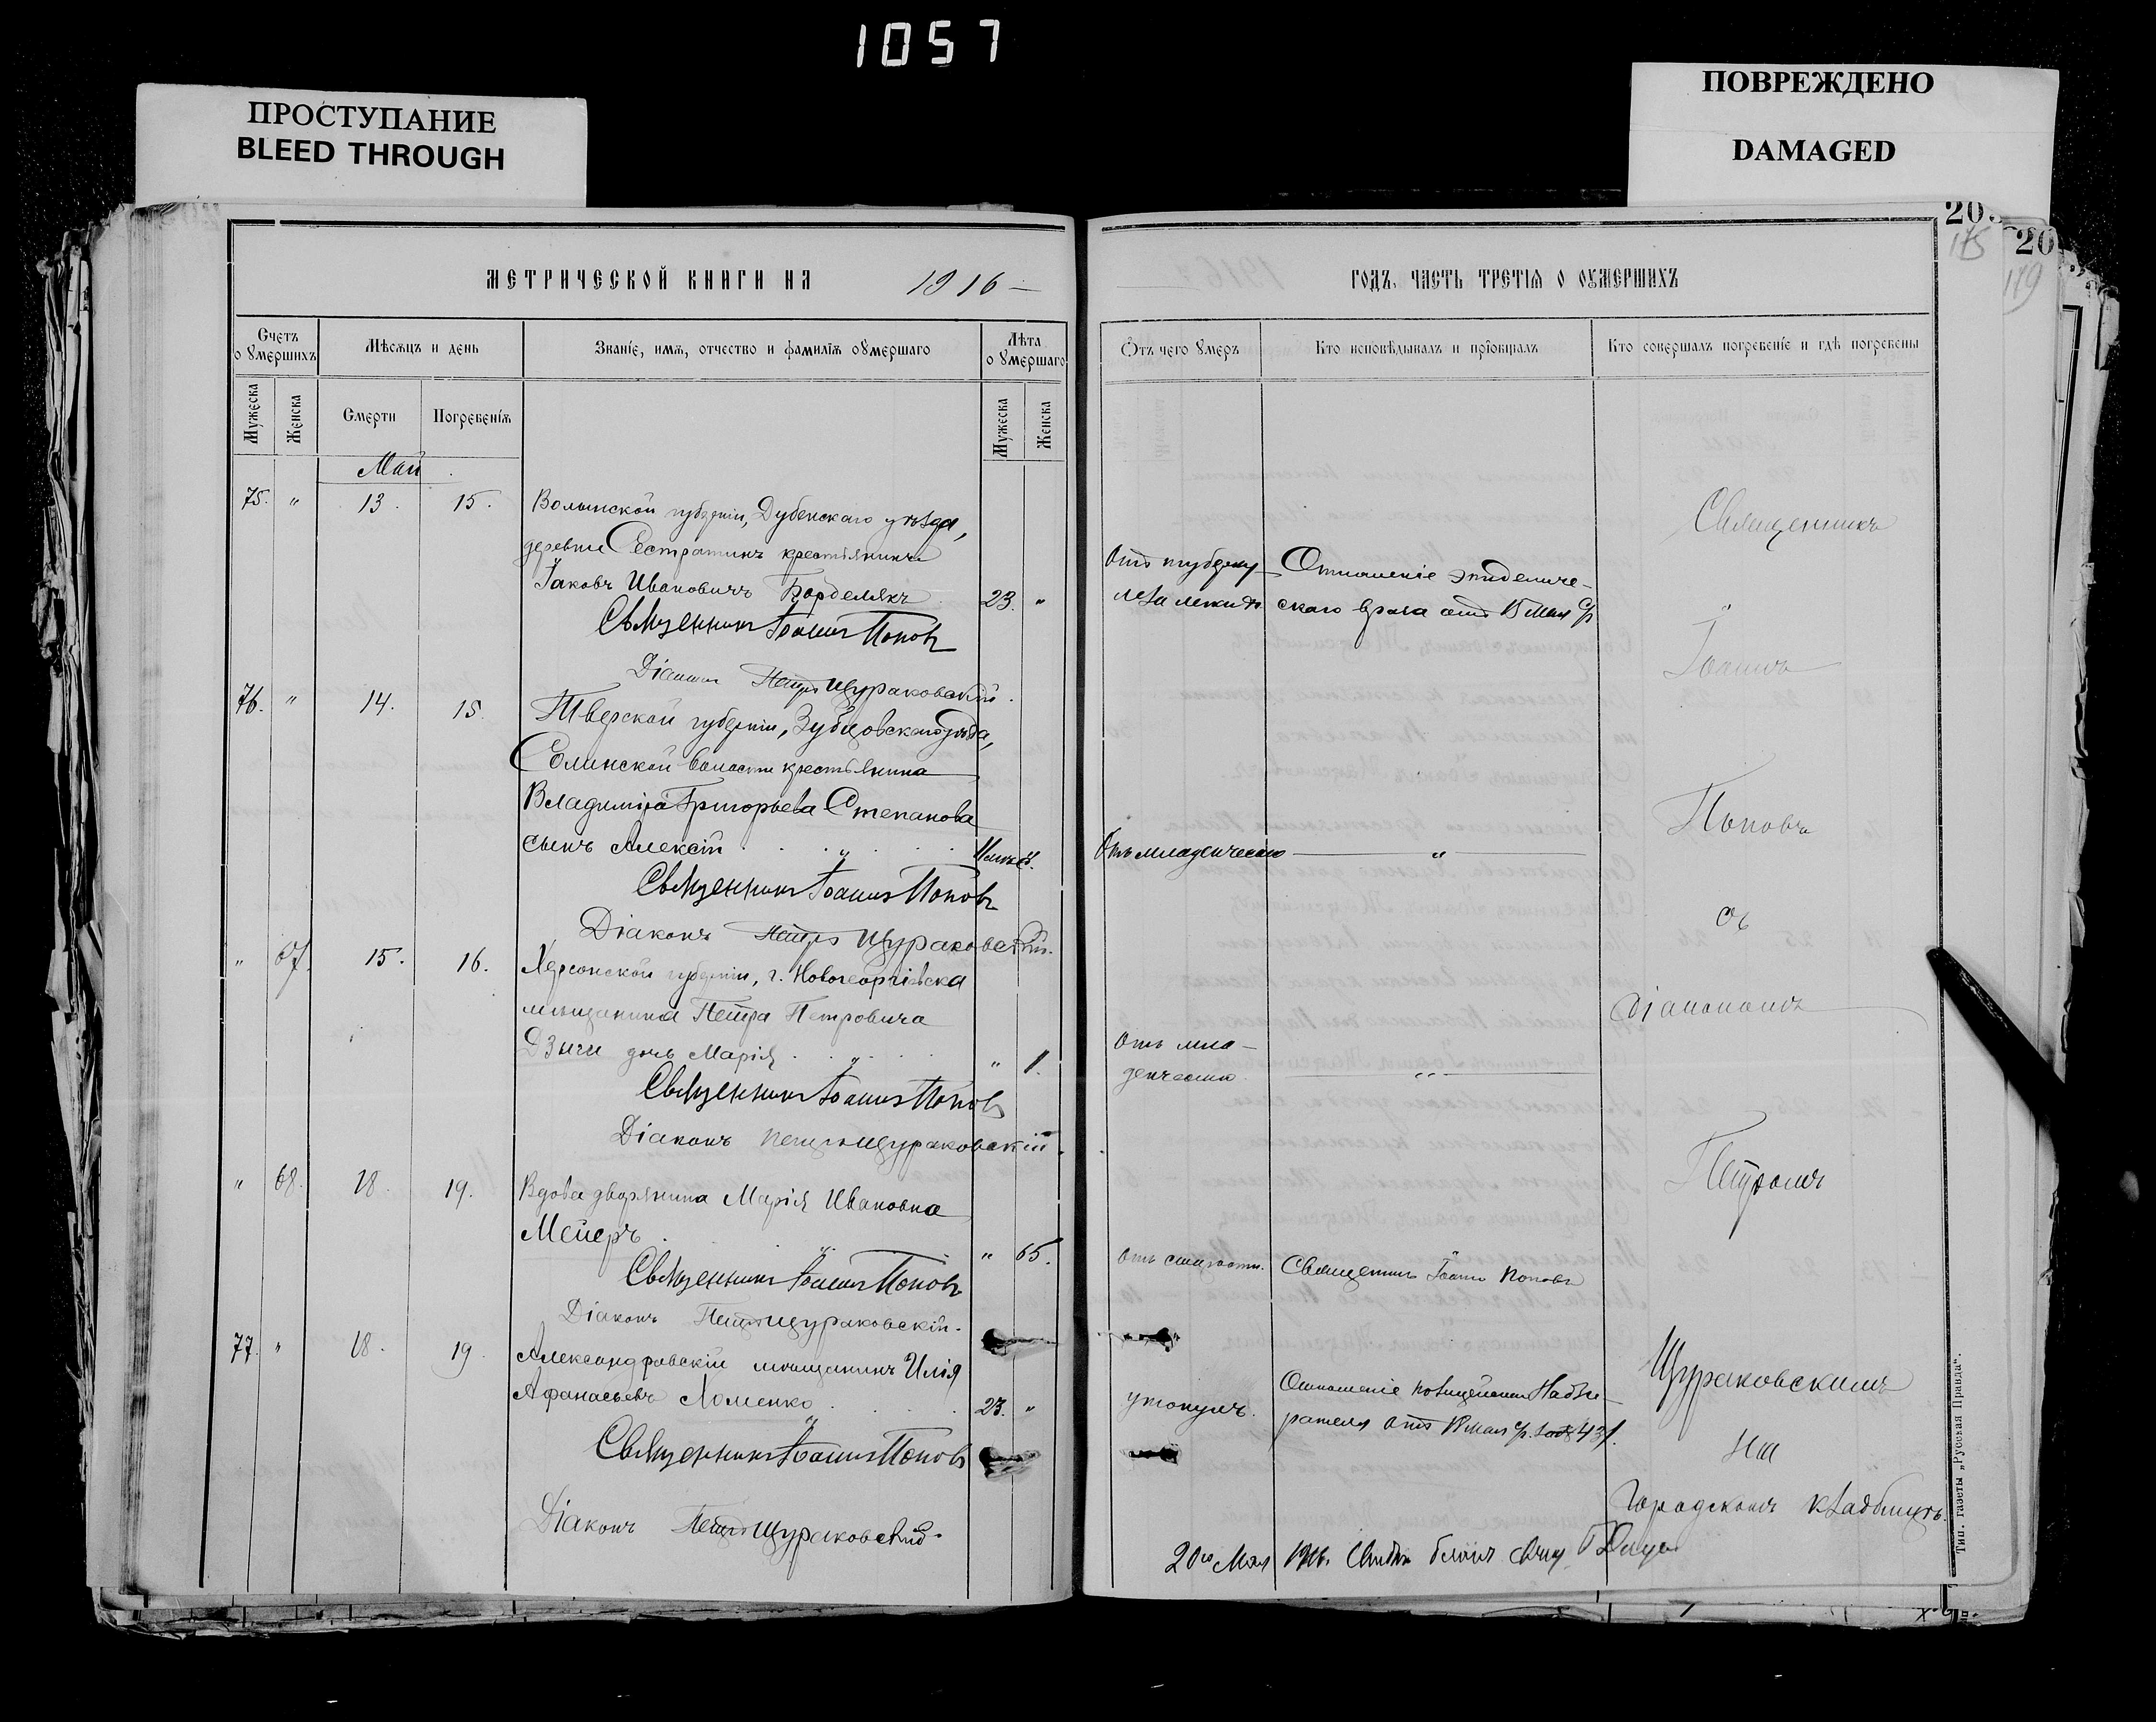 1057
ПРОСТУПАНИЕ
BLEED THROUGH
ПОВРЕЖДЕНО
DAMAGED
МЕТРИЧЕСКОЙ КНИГИ НА 1916
Счетъ оумершихъ
Мѣсяцъ и день
Званіе, имя, отчество и фамилія оумершаго
Лѣта оумершаго
Мужеска
Женска
Смерти
Погребенія
Мужеска
Женска
Май
75. " 13. 15. Волынской губерніи, Дубенскаго уѣзда,
деревни Сестратинъ крестьянинъ
Іаковъ Ивановичъ Борделякъ 23. "
Священникъ Іоаннъ Поповъ
Діаконъ Петръ Щураковскій.
76. " 14. 15. Тверской губерніи, Зубцовскаго уѣзда,
волости крестьянина
Владиміра Григорьева Степанова
сынъ Алексій
Священникъ Іоаннъ Поповъ
Діаконъ Петръ Щураковскій.
" 67. 15. 16. Херсонской губерніи, г. Новогеоргіевска
мѣщанина Петра Петровича
Дзыги дочь Марія " 1.
Священникъ Іоаннъ Поповъ
Діаконъ Петръ Щураковскій.
" 68. 18. 19. Вдова дворянина Марія Ивановна
Мейеръ " 65.
Священникъ Іоаннъ Поповъ
Діаконъ Петръ Щураковскій.
77. " 18. 19. Александровскій мѣщанинъ Илія
Афанасьевъ Ломенко 23. "
Священникъ Іоаннъ Поповъ
Діаконъ Петръ Щураковскій.
20
175
20
179
ГОДЪ, ЧАСТЬ ТРЕТІЯ О ОУМЕРШИХЪ
Отъ чего умеръ
Кто исповѣдывалъ и пріобщалъ
Кто совершалъ погребеніе и гдѣ погребены
Отъ туберку-
леза легкихъ
Отношеніе эпидемиче-
скаго врача отъ 15 мая с/г
Отъ младенческаго "
Отъ мла-
денческаго "
Отъ старости. Священникъ Іоаннъ Поповъ
утонулъ.
Отношеніе полицейскаго Надзи-
рателя отъ 18 мая с/г.
Священникъ
Іоаннъ
Поповъ
съ
діакономъ
Петромъ
Щураковскимъ
на
Городскомъ кладбищѣ.
20го Мая 1916.
Тип. газеты „Русская Правда".